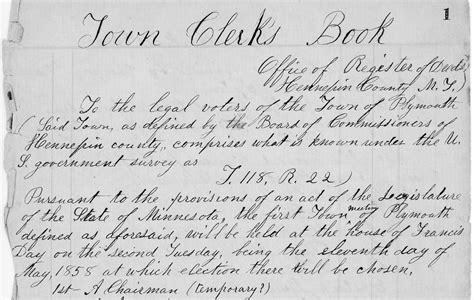 1
Town Clerks Book
Office of Register of Deeds,
Hennepin County M. T.
To the legal voters of the Town of Plymouth
(Said Town, as defined by the Board of Commissioners of
Hennepin county, comprises what is known under the U.
S. government survey as
T. 118, R. 22)
Pursuant to the provisions of an act of the Legislature
of the State of Minnesota, the first Town meeting of Plymouth
defined as aforesaid, will be held at the house of Francis
Day on the second Tuesday, being the eleventh day of
May, 1858 at which election there will be chosen,
1st A. Chairman (temporary?)